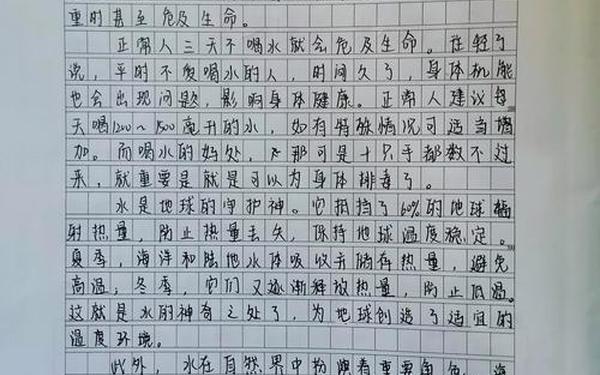 重时甚至危及生命。
正常人三天不喝水就会危及生命。往轻了
说，平时不爱喝水的人，时间久了，身体机能
也会出现问题，影响身体健康。正常人建议每
天喝1200～1500毫升的水，如有特殊情况可适当增
加。而喝水的好处，那可是十只手都数不过
来，就重要是就是可以为身体排毒了。
水是地球的守护神。它抵挡了60%的地球辐
射热量，防止热量丢失，保持地球温度稳定。
夏季，海洋和陆地水体吸收并储存热量，避免
高温；冬季，它们又逐渐释放热量，防止低温。
这就是水的神奇之处了，为地球创造了适宜的
温度环境。
此外，水在自然界中扮演着重要角色。海